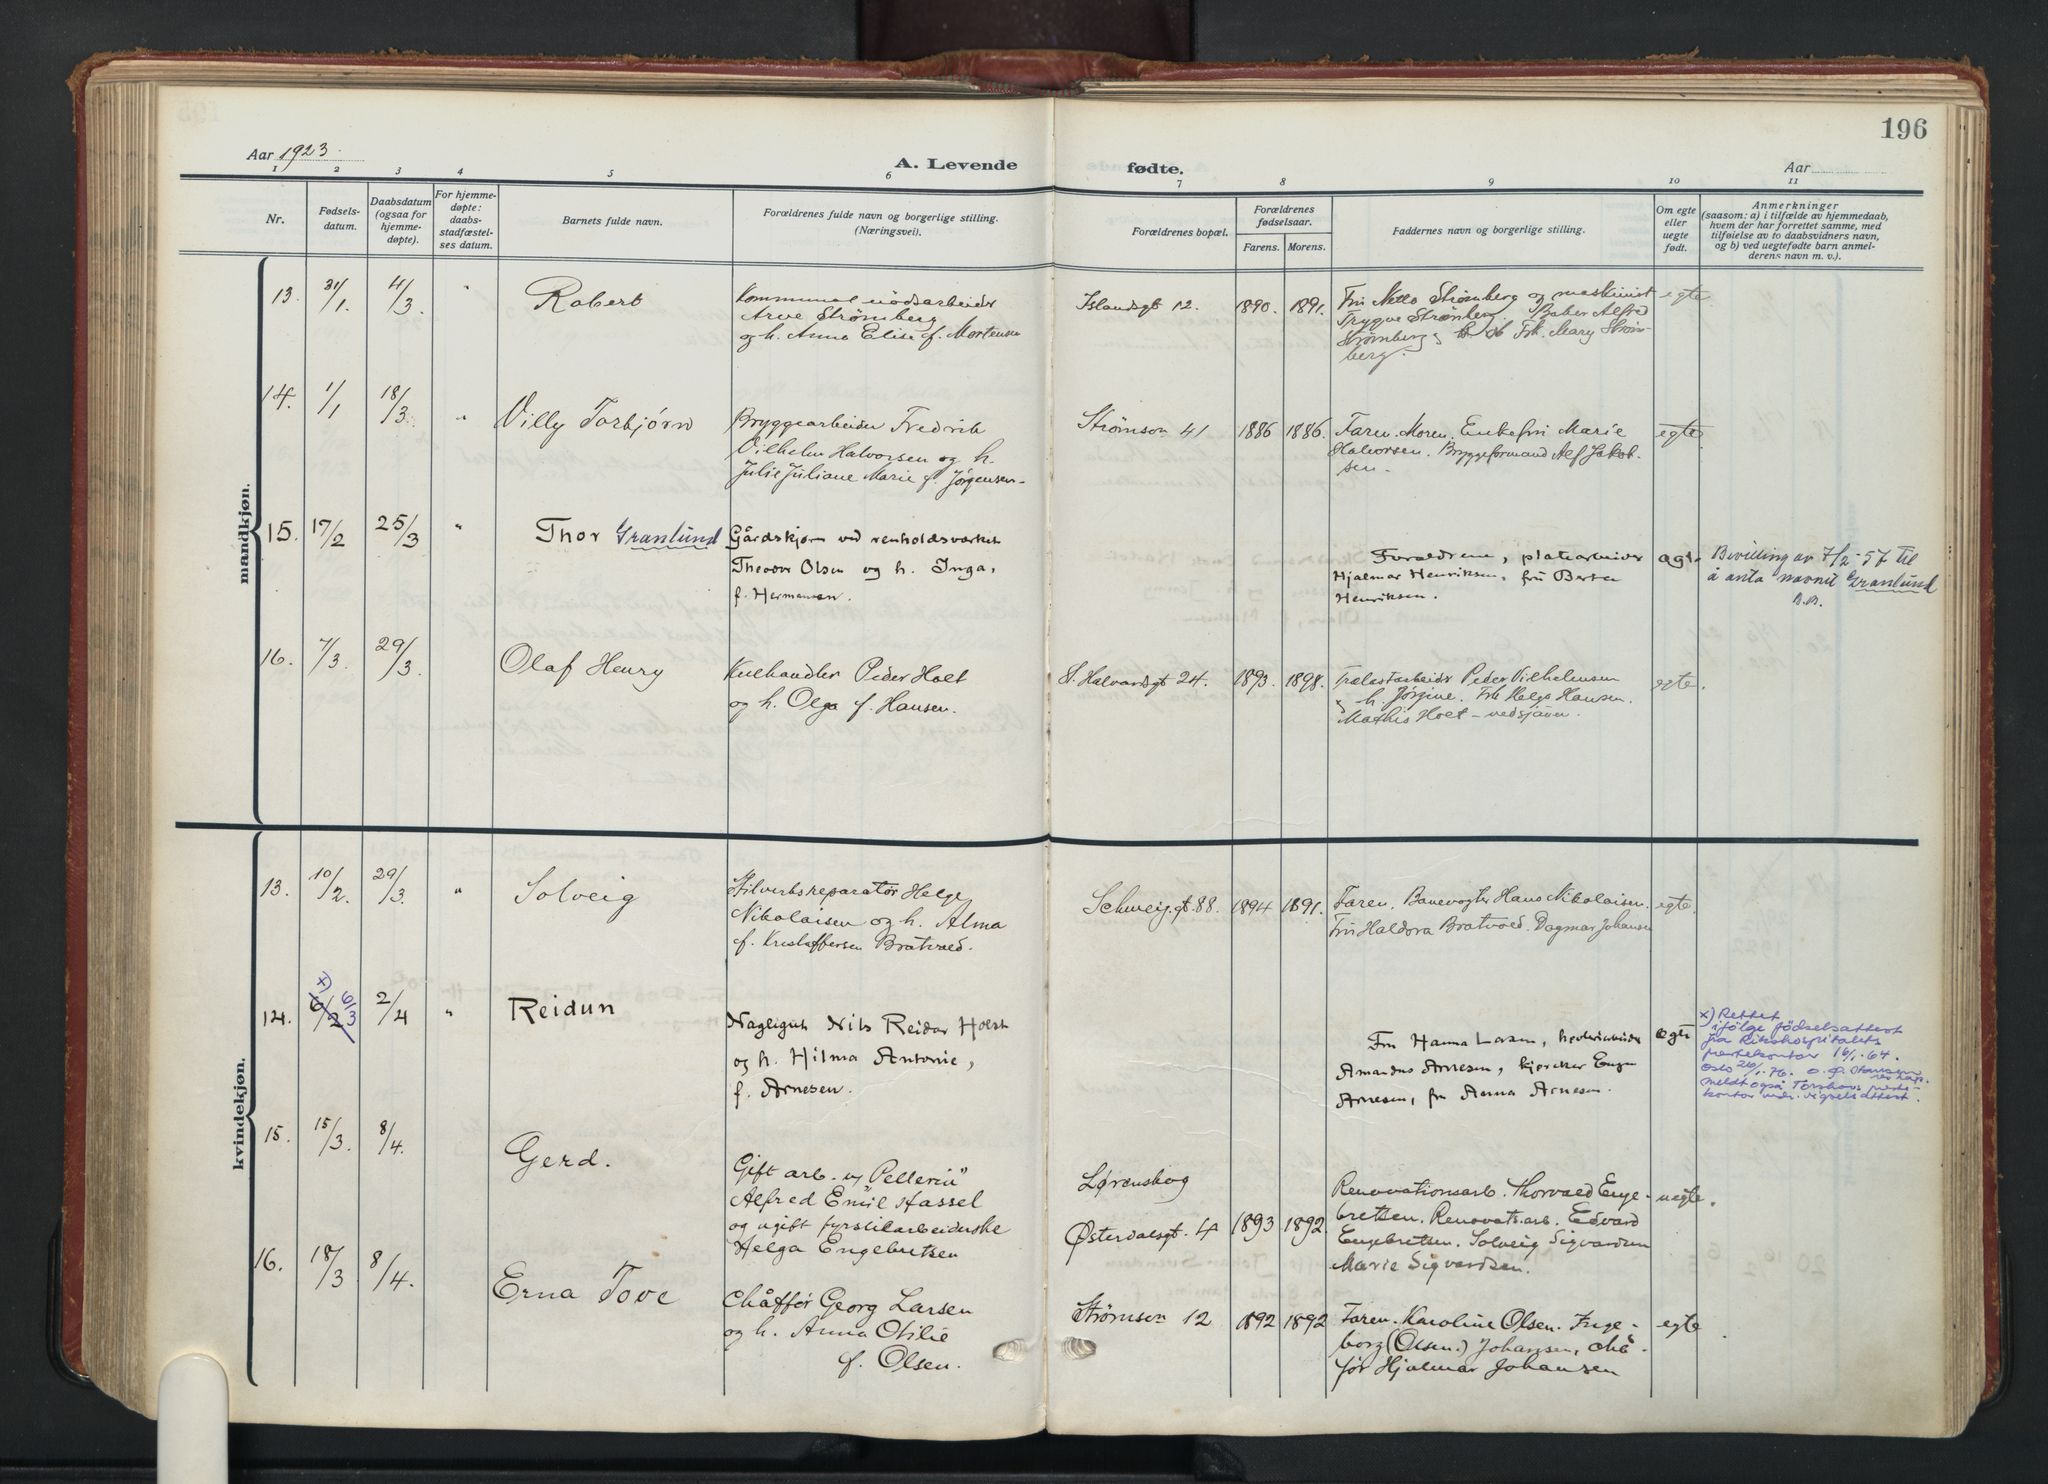 196
Aar 1923.
A. Levende
fødte.
Aar
1 2 3 4 5 6 7 8 9 10 11
Nr.
Fødsels-
datum.
Daabsdatum
(ogsaa for
hjemme-
døpte).
For hjemme-
døpte:
daabs-
stadfæstel-
ses datum.
Barnets fulde navn.
Forældrenes fulde navn og borgerlige stilling.
(Næringsvei).
Forældrenes bopæl.
Forældrenes
fødselsaar.
Farens. Morens.
Faddernes navn og borgerlige stilling.
Om egte
eller
uegte
født.
Anmerkninger
(saasom: a) i tilfælde av hjemmedaab,
hvem der har forrettet samme, med
tilføielse av to daabsvidners navn,
og b) ved uegtefødte barn anmel-
derens navn m. v.).
mandkjøn.
13. 31/1. 4/3. " Robert
Kommunal nødsarbeider
Arve Strømberg
og h. Anna Elise f. Mortensen
Islandsgt 12. 1890. 1891.
Fru Netto Strømberg og maskinist
Trygve Strømberg. Baker Alfred
Strømberg og Frk. Mary Strøm-
berg.
egte
14. 1/1 18/3 " Villy Torbjørn
Bryggearbeider Fredrik
Vilhelm Halvorsen og h.
Julie Juliane Marie f. Jørgensen
Strømson 41 1886 1886.
Faren. Moren. Enkefru Marie
Halvorsen. Bryggeformand Alf Jakob-
sen.
egte
15. 17/2 25/3 " Thor Granlund
Gårdskjører ved renholdsverket
Theodor Olsen og h. Inga,
f. Hermansen.
Forældrene, platearbeider
Hjalmar Henriksen, fru Berta
Henriksen.
egte.
Bevilling av 7/2-57 til
å anta navnet Granlund
B.B.
16. 7/3. 29/3 Olaf Henry
Kulhandler Peder Holt
og h. Olga f. Hansen.
St. Halvardsgt 24. 1893. 1898.
Trælastarbeider Peder Vilhelmsen
og h. Jørgine. Frk Helga Hansen.
Mathis Holt - vedsjåuer.
egte.
kvindekjøn.
13. 10/2. 29/3. " Solveig
Silverksreparatør Helge
Nikolaisen og h. Alma
f. Kristoffersen Bratvold.
Schweig.gt. 88. 1894 1891.
Faren. Banevogter Hans Nikolaisen.
Fru Haldora Bratvold. Dagmar Johansen
egte.
14. x) 6/2 6/3 2/4 " Reidun
Nagligut Nils Reidar Holst
og h. Hilma Antonie,
f. Arnesen.
Fru Hanna Larsen,
Amandus Arnesen, kjørekar Eugen
Arnesen, fru Anna Arnesen.
egte
x) Rettet
ifølge fødselsattest
fra Rikshospitalets
prestekontor 16/1-64.
Oslo 26/1-76.
meldt også Torshovs preste-
kontor vedr. vigselsattest.
15. 15/3. 8/4. Gerd.
Gift arb. v/ "Pellerin"
Alfred Emil Hassel
og ugift fyrstikarbeiderske
Helga Engebretsen
Lørenskog
Østerdalsgt. 4 1893 1892.
Renovationsarb. Thorvald Enge-
bretsen. Renovats.arb. Edvard
Engebretsen. Solveig Sigvardsen
Marie Sigvardsen.
uegte.
16. 18/3 8/4. Erna Tove
Chåffør Georg Larsen
og h. Anna Otilie
f. Olsen.
Strømson 12 1892 1892
Faren. Karoline Olsen. Inge-
borg (Olsen.) Johansen, chå-
før Hjalmar Johansen
egte